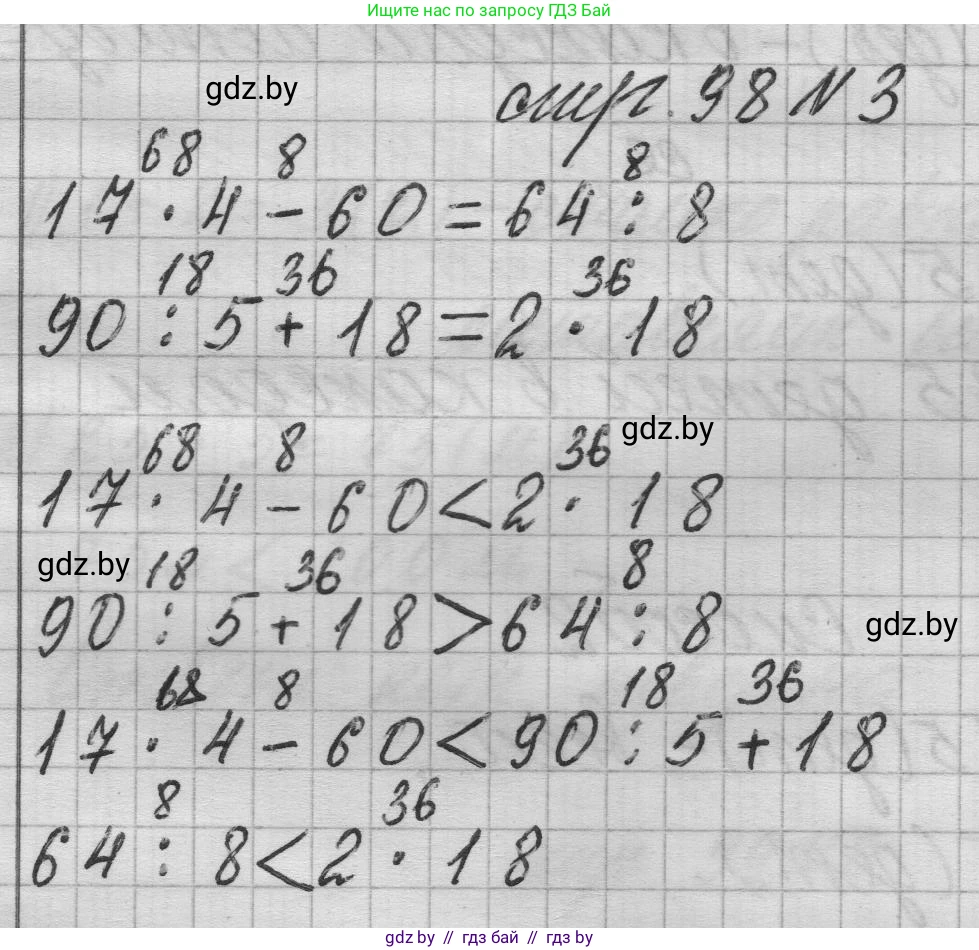 Ищите нас по запросу ГДЗ Бай
gdz.by
стр. 98 N 3
68 8 8
17 · 4 - 60 = 64 : 8
18 36 36
90 : 5 + 18 = 2 · 18
68 8 36 gdz.by
17 · 4 - 60 < 2 · 18
gdz.by 18 36 8
90 : 5 + 18 > 64 : 8
gdz.by
68 8 18 36
17 · 4 - 60 < 90 : 5 + 18
8 36
64 : 8 < 2 · 18
gdz.by // гдз бай // гдз by